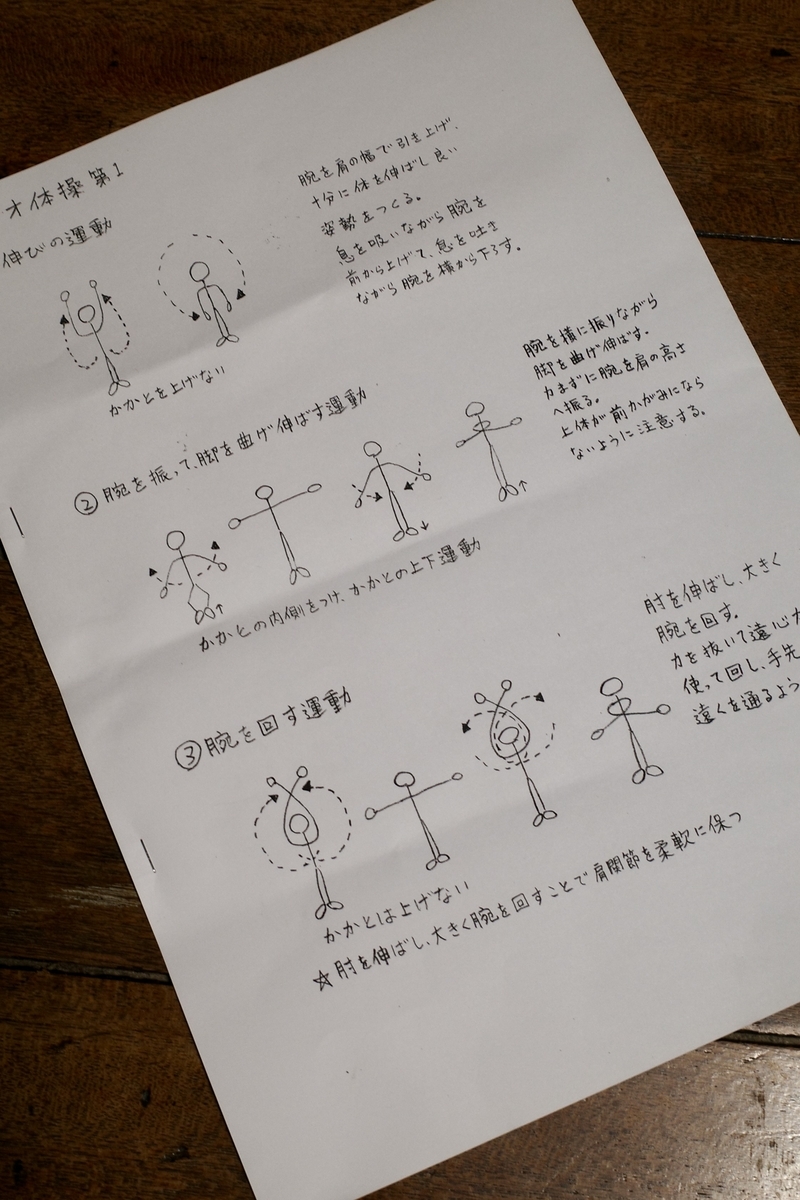 オ体操第1
伸びの運動
腕を肩の幅で引き上げ、
十分に体を伸ばし良い
姿勢をつくる。
息を吸いながら腕を
前から上げて、息を吐き
ながら腕を横から下ろす。
かかとを上げない
②腕を振って、脚を曲げ伸ばす運動
腕を横に振りながら
脚を曲げ伸ばす。
力まずに腕を肩の高さ
へ振る。
上体が前かがみになら
ないように注意する。
かかとの内側をつけ、かかとの上下運動
③腕を回す運動
肘を伸ばし、大きく
腕を回す。
力を抜いて遠心力
使って回し、手先
遠くを通るよう
かかとは上げない
☆肘を伸ばし、大きく腕を回すことで肩関節を柔軟に保つ